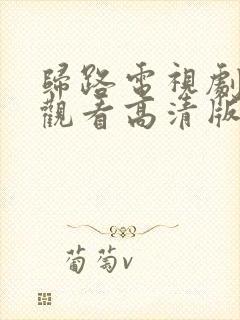 歸路電視劇
觀看高清版
葡萄v